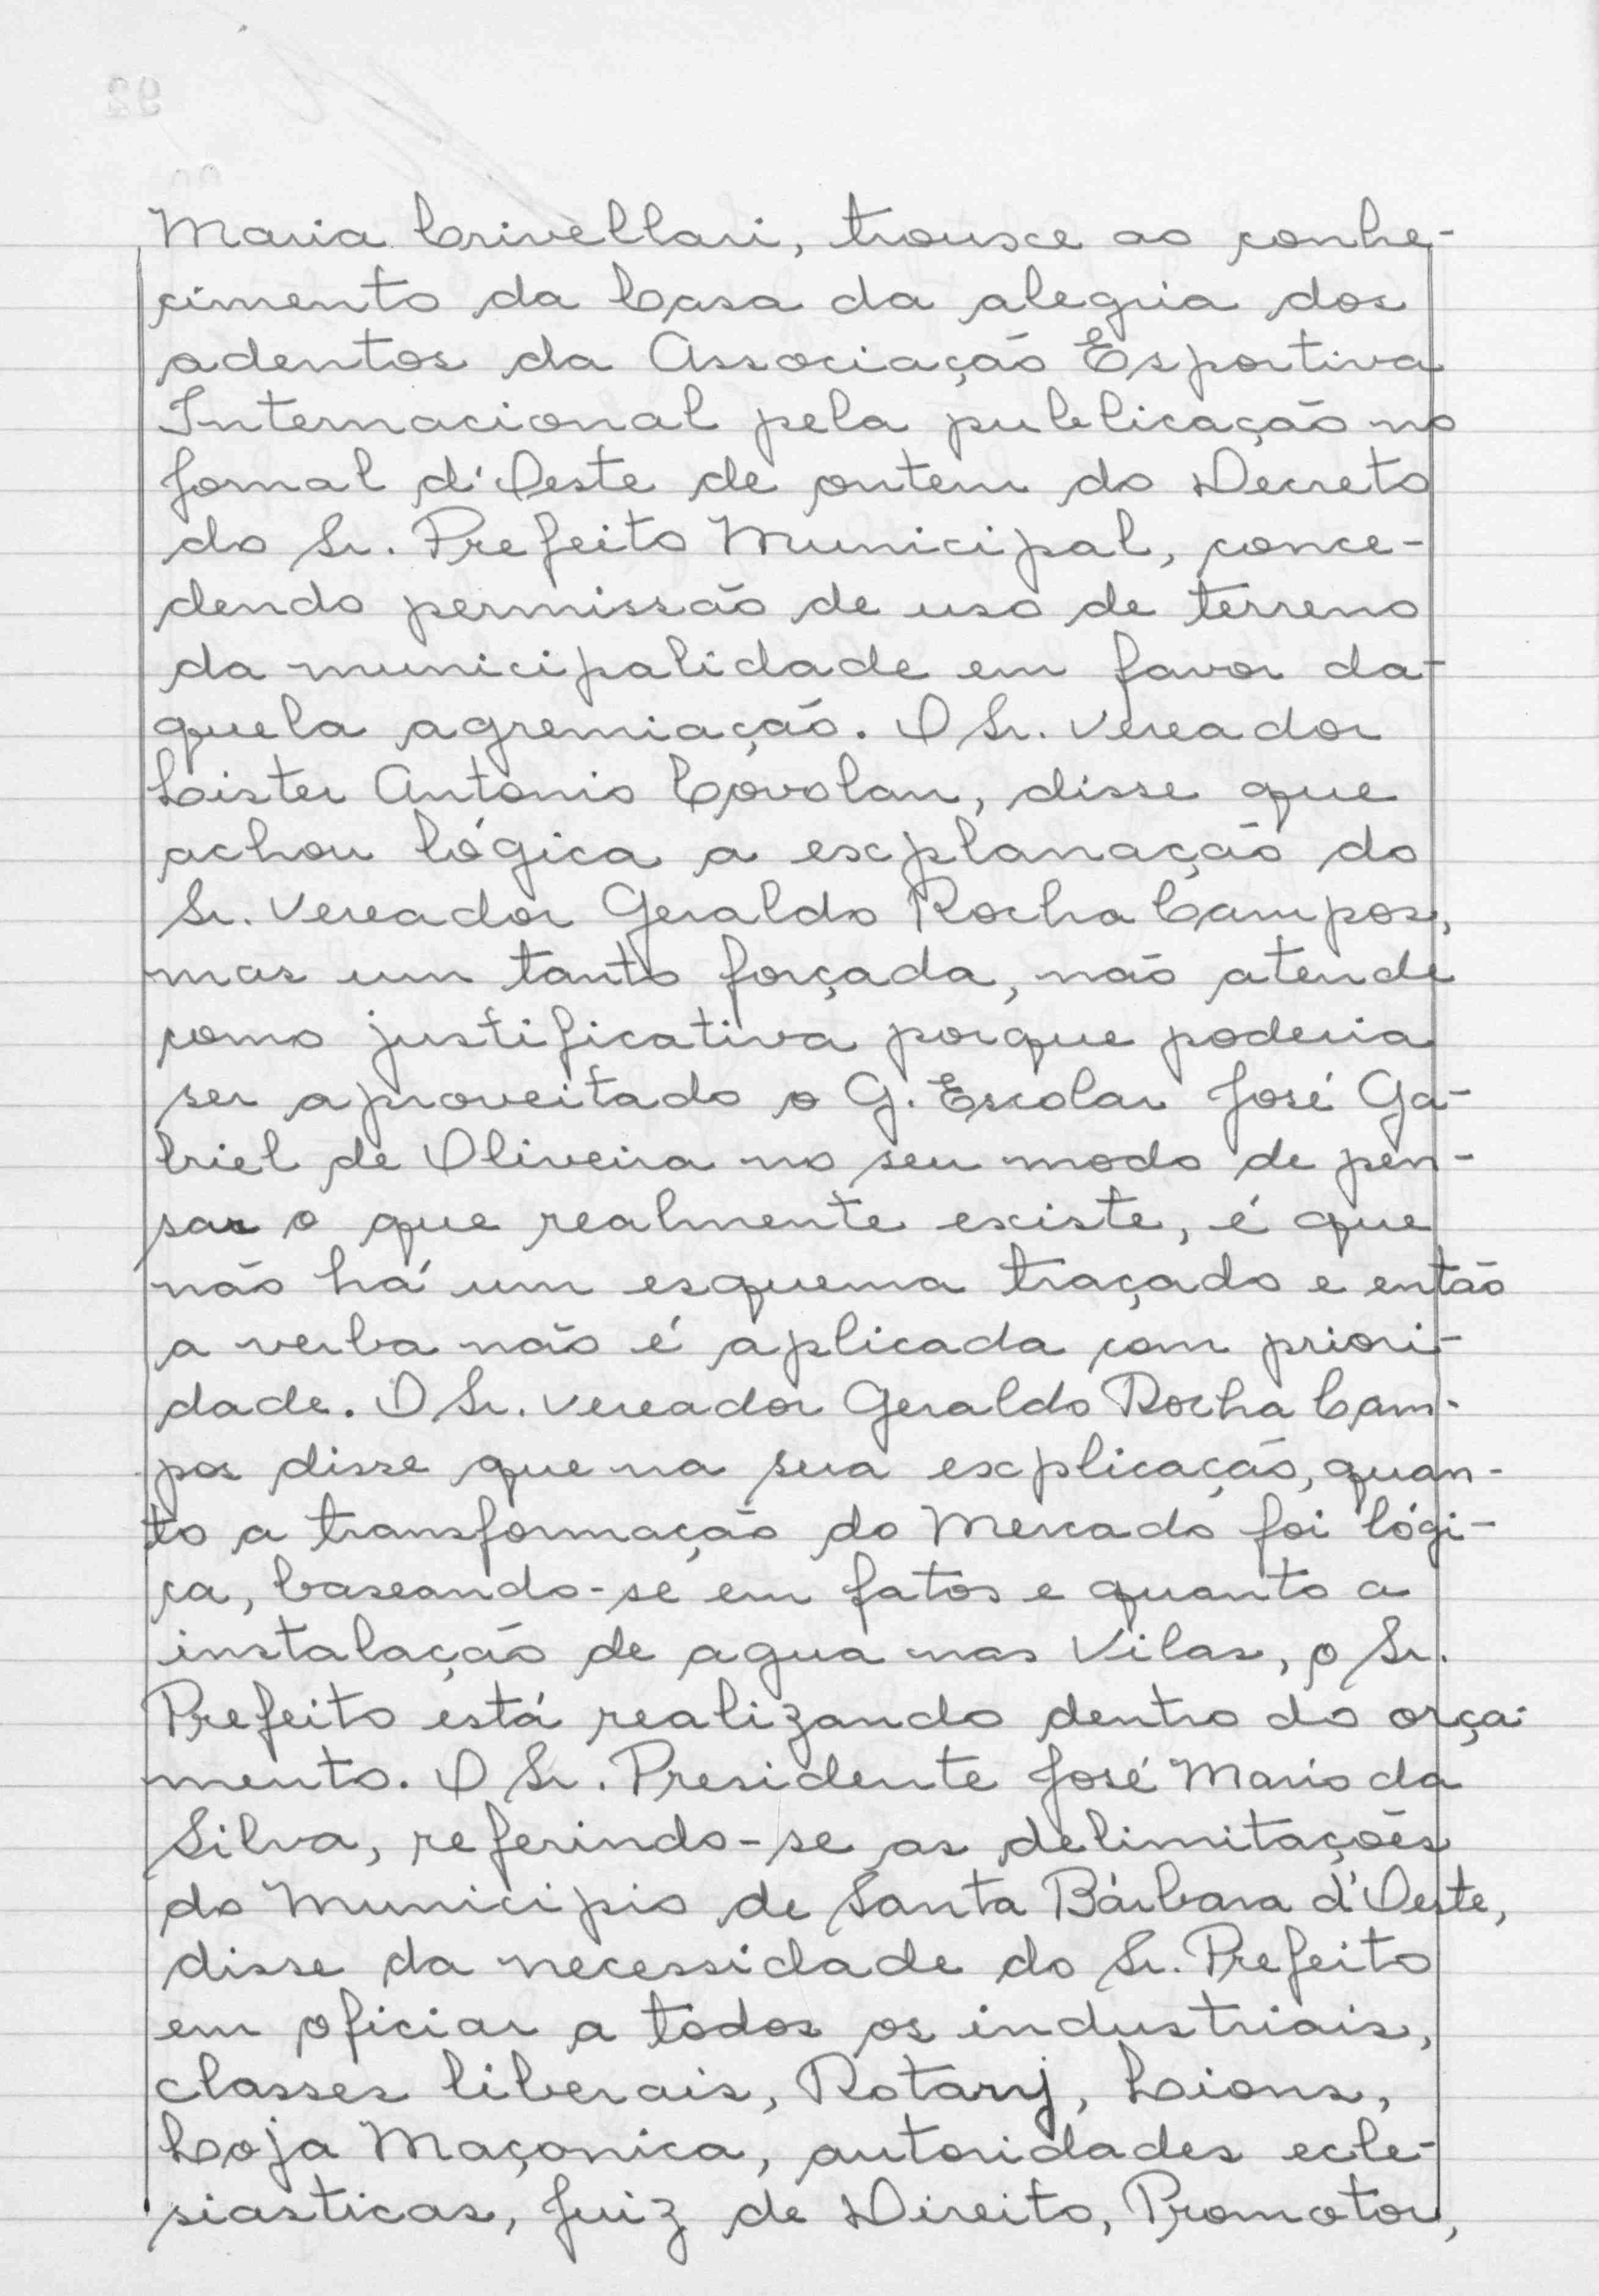 Maria Crivellari, trouxe ao conhe-
cimento da Casa da alegria dos
adentos da Associação Esportiva
Internacional pela publicação no
Jornal d'Oeste de ontem do Decreto
do Sr. Prefeito Municipal, conce-
dendo permissão de uso de terreno
da municipalidade em favor da-
quela agremiação. O Sr. Vereador
Lister Antonio Cóvolan, disse que
achou lógica a explanação do
Sr. Vereador Geraldo Rocha Campos,
mas um tanto forçada, não atende
como justificativa porque poderia
ser aproveitado o G. Escolar José Ga-
briel de Oliveira no seu modo de pen-
sar o que realmente existe, é que
não há um esquema traçado e então
a verba não é aplicada com priori-
dade. O Sr. Vereador Geraldo Rocha Cam-
pos disse que na sua explicação, quan-
to a transformação do Mercado foi lógi-
ca, baseando-se em fatos e quanto a
instalação de agua nas Vilas, o Sr.
Prefeito está realizando dentro do orça-
mento. O Sr. Presidente José Maria da
Silva, referindo-se as delimitações
do Municipio de Santa Bárbara d'Oeste,
disse da necessidade do Sr. Prefeito
em oficiar a todos os industriais,
classes liberais, Rotary, Lions,
Loja Maçonica, autoridades ecle-
siasticas, Juiz de Direito, Promotor,